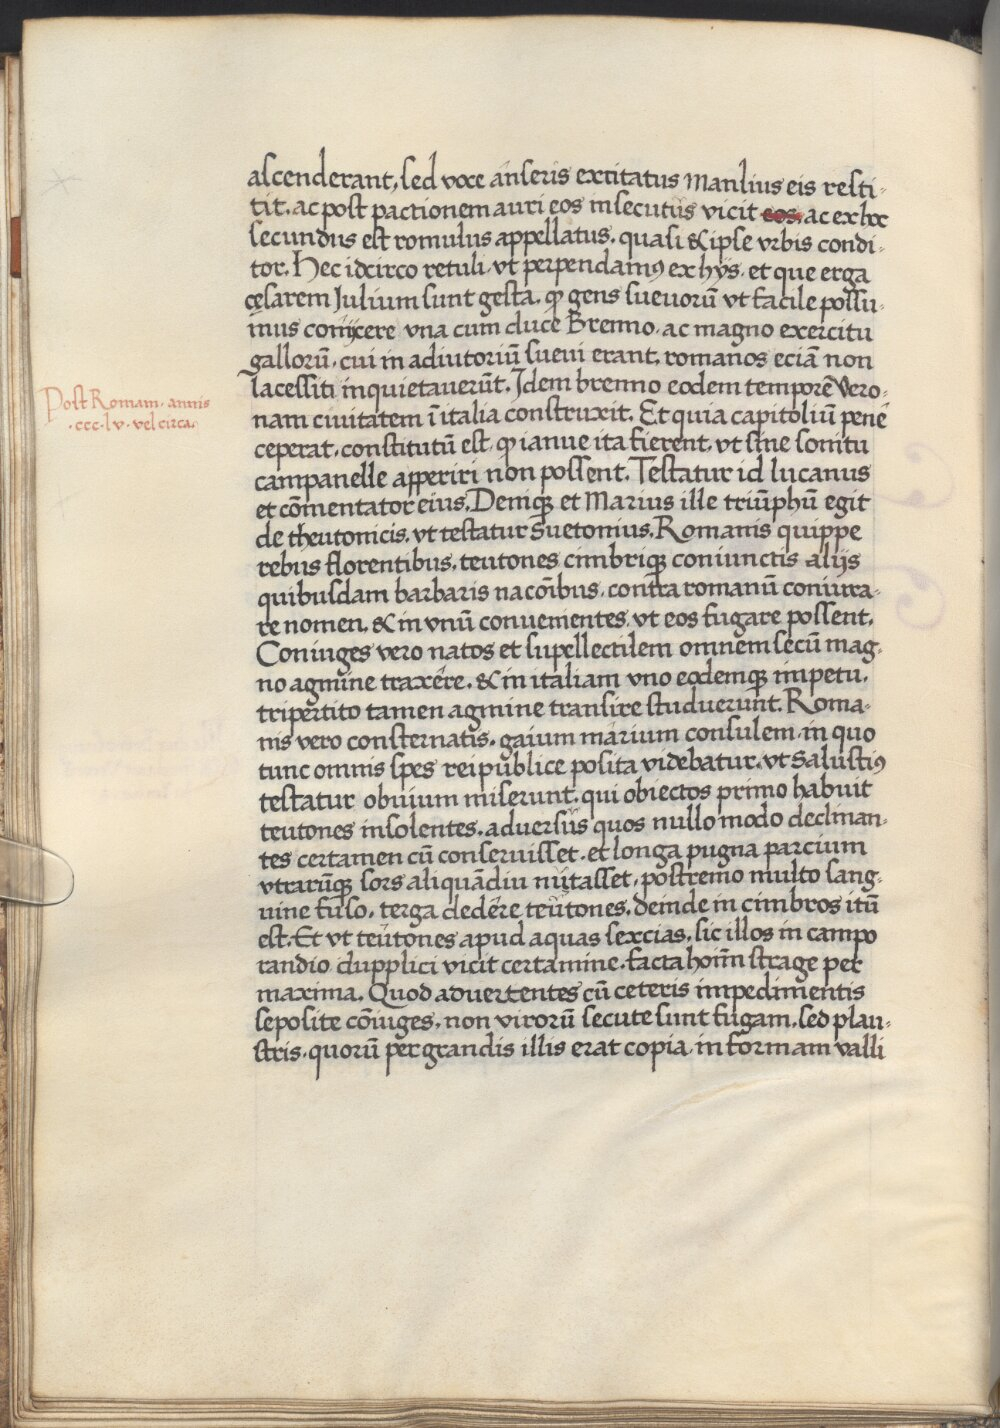 ascenderant, sed voce anseris excitatus Manlius eis resti-
tit, ac post pactionem auri eos insecutus vicit eos, ac ex hoc
secundus est romulus appellatus, quasi & ipse vrbis condi-
tor. Hec idcirco retuli, vt perpendamꝯ ex hijs, et que erga
cesarem Julium sunt gesta, ꝙ gens sueuorū vt facile possu-
mus conijcere vna cum duce Brenno, ac magno exercitu
gallorū, cui in adiutoriū sueui erant, romanos eciā non
lacessiti inquietauerūt. Idem brenno eodem tempore Vero-
nam ciuitatem ī italia construxit. Et quia capitoliū pene
ceperat, constitutū est, ꝙ ianue ita fierent, vt sine sonitu
campanelle apperiri non possent. Testatur id lucanus
et cōmentator eius. Deniqꝫ et Marius ille triūphū egit
de theutonicis, vt testatur Suetonius. Romanis quippe
rebus florentibus, teutones cimbriqꝫ coniunctis alijs
quibusdam barbaris nacōibus, contra romanū coniura-
re nomen, & in vnū conuenientes, vt eos fugare possent.
Coniuges vero natos et supellectilem omnem secū mag-
no agmine traxere, & in italiam vno eodemqꝫ impetu,
tripertito tamen agmine transire studuerunt. Roma-
nis vero consternatis, gaium marium consulem, in quo
tunc omnis spes reipublice posita videbatur, vt Salustiꝯ
testatur obuium miserunt, qui obiectos primo habuit
teutones insolentes, aduersus quos nullo modo declinan-
tes certamen cū conseruisset, et longa pugna parcium
vtrarūqꝫ sors aliquādiu nutasset, postremo multo sang-
uine fuso, terga dedere teutones, deinde in cimbros itū
est. Et vt teutones apud aquas sexcias, sic illos in campo
randio dupplici vicit certamine, facta hoīm strage per
maxima. Quod aduertentes cū ceteris impedimentis
seposite cōiuges, non virorū secute sunt fugam, sed plau-
stris, quorū per grandis illis erat copia, in formam valli
Post Romam. annis
.ccc.lv. vel circa.